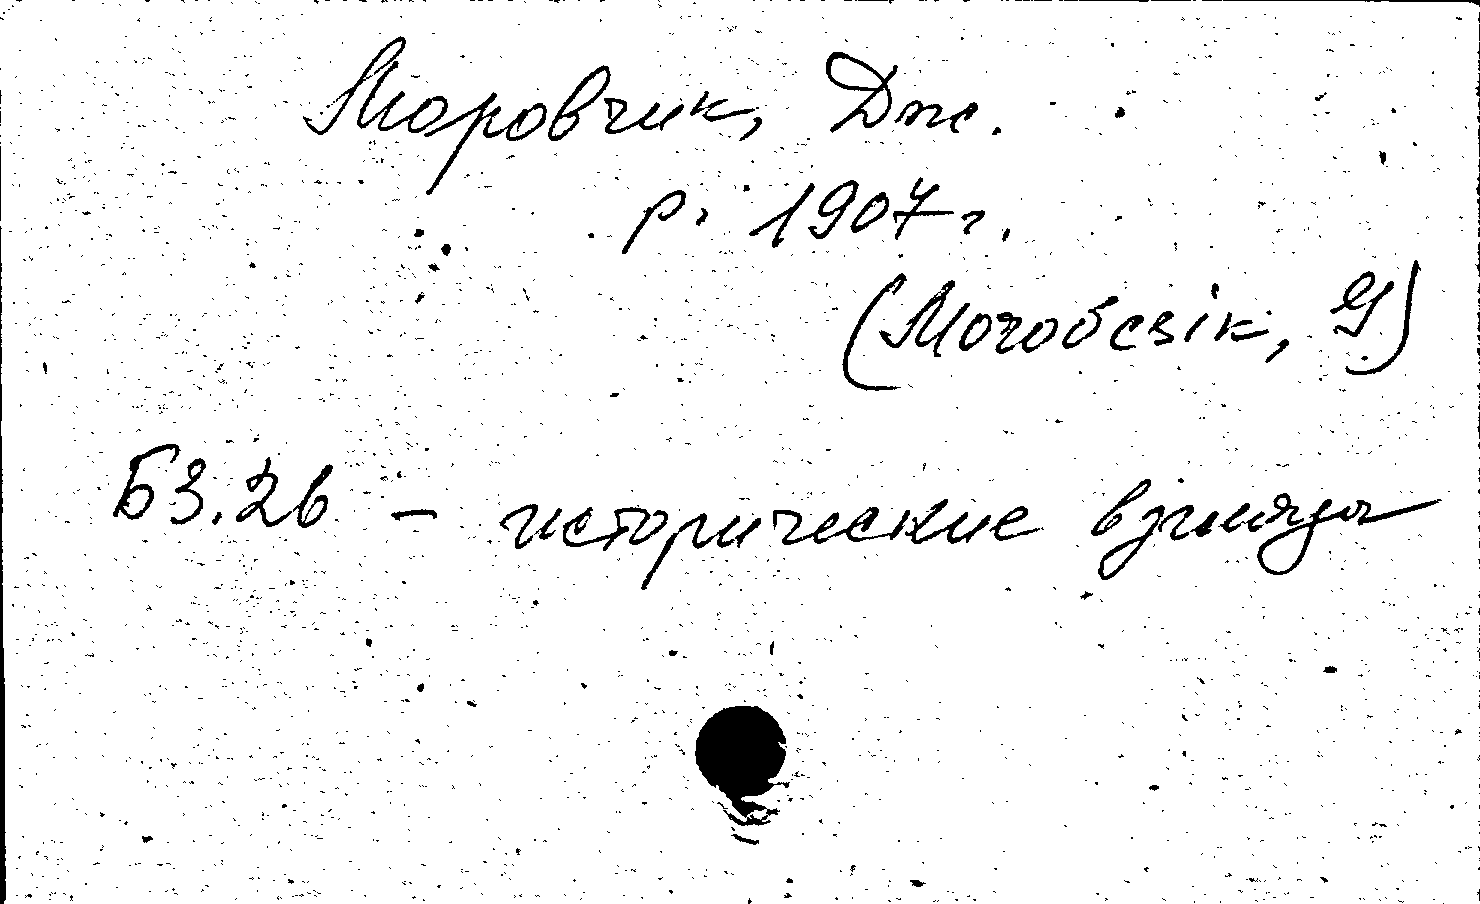 Моровчик, Дж.
р. 1907 г.
(Morobczik, Y)
Б3.2в – исторические взгляды